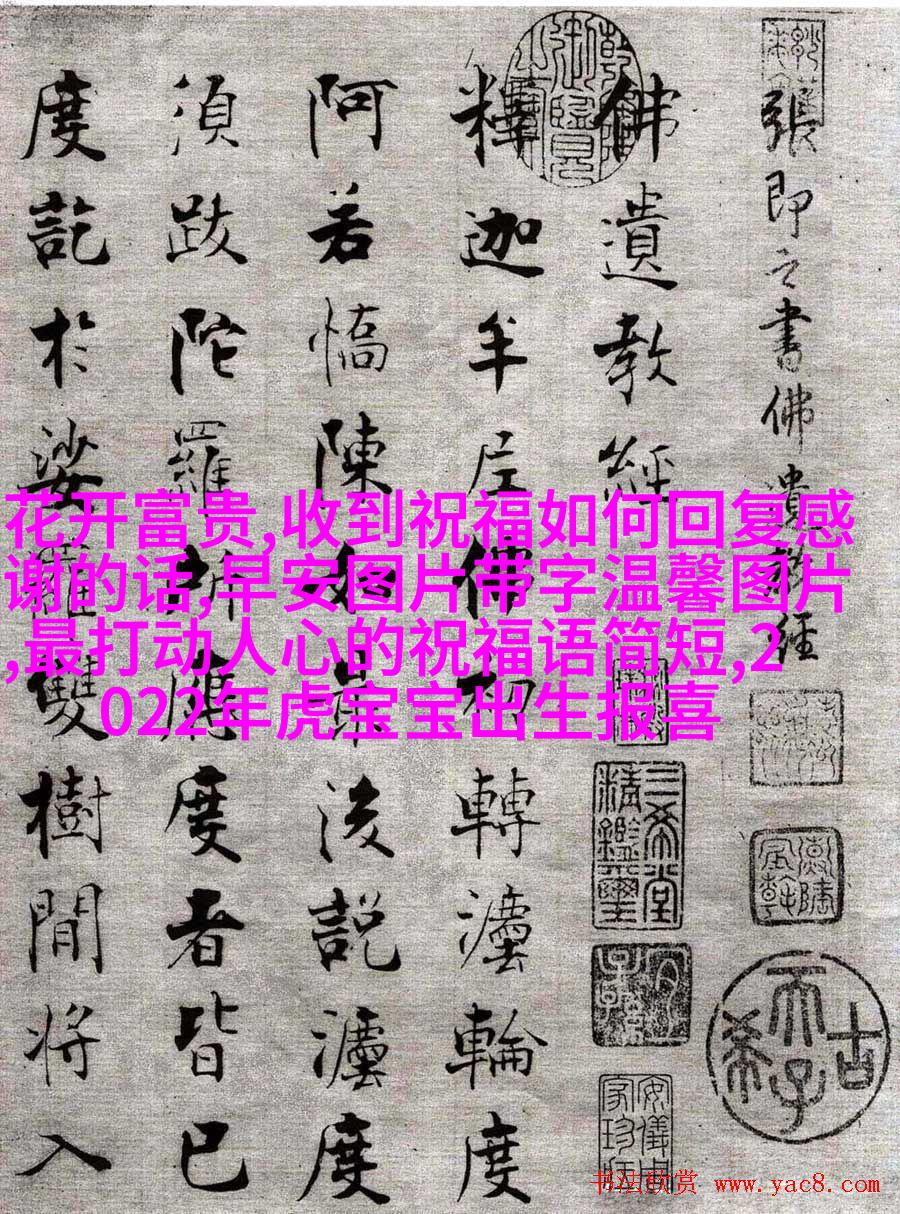 張即之書佛遺教經
佛遺教經
釋迦牟尼佛初轉灋輪度
阿若憍陳如最後說灋度
須跋陀羅所應度者皆已
度訖於娑羅雙樹間將入
花开富贵,收到祝福如何回复感
谢的话,早安图片带字温馨图片
,最打动人心的祝福语简短,2
022年虎宝宝出生报喜
三希堂精鑑璽
古希天子
书法欣赏 www.yac8.com